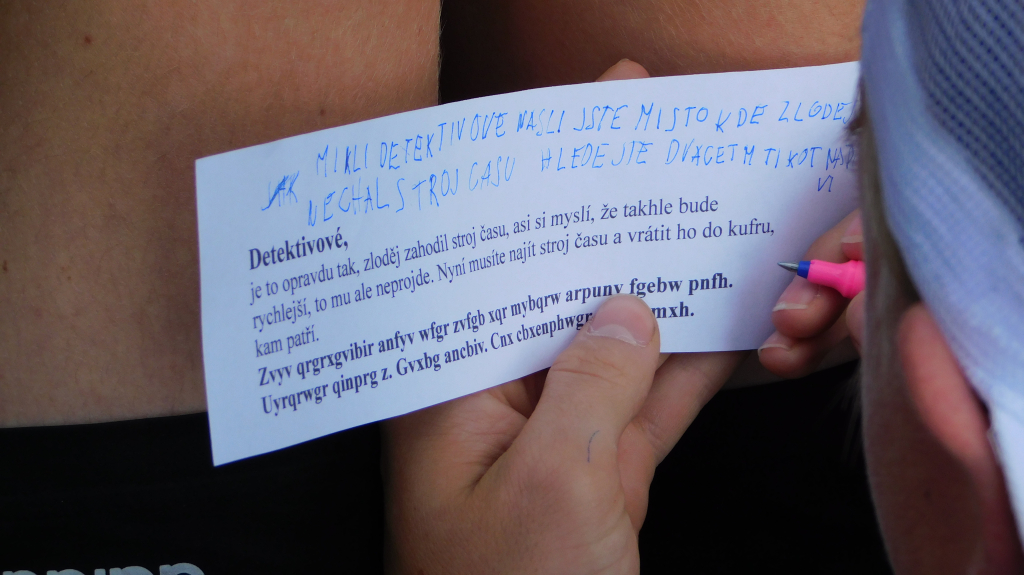 MIKLI DETEKTIVOVE NASLI JSTE MISTO KDE ZLODEJ
JAK NECHAL STROJ CASU HLEDEJTE DVACET M TIKOT
VI
Detektivové,
je to opravdu tak, zloděj zahodil stroj času, asi si myslí, že takhle bude
rychlejší, to mu ale neprojde. Nyní musíte najít stroj času a vrátit ho do kufru,
kam patří.
Zvyv qrgrxgvibir anfyv wfgr zvfgb xqr mybqrw arpuny fgebw pnfh.
Uyrqrwgr qinprg z. Gvxbg ancbiv. Cnx cbxenphwgr mxh.